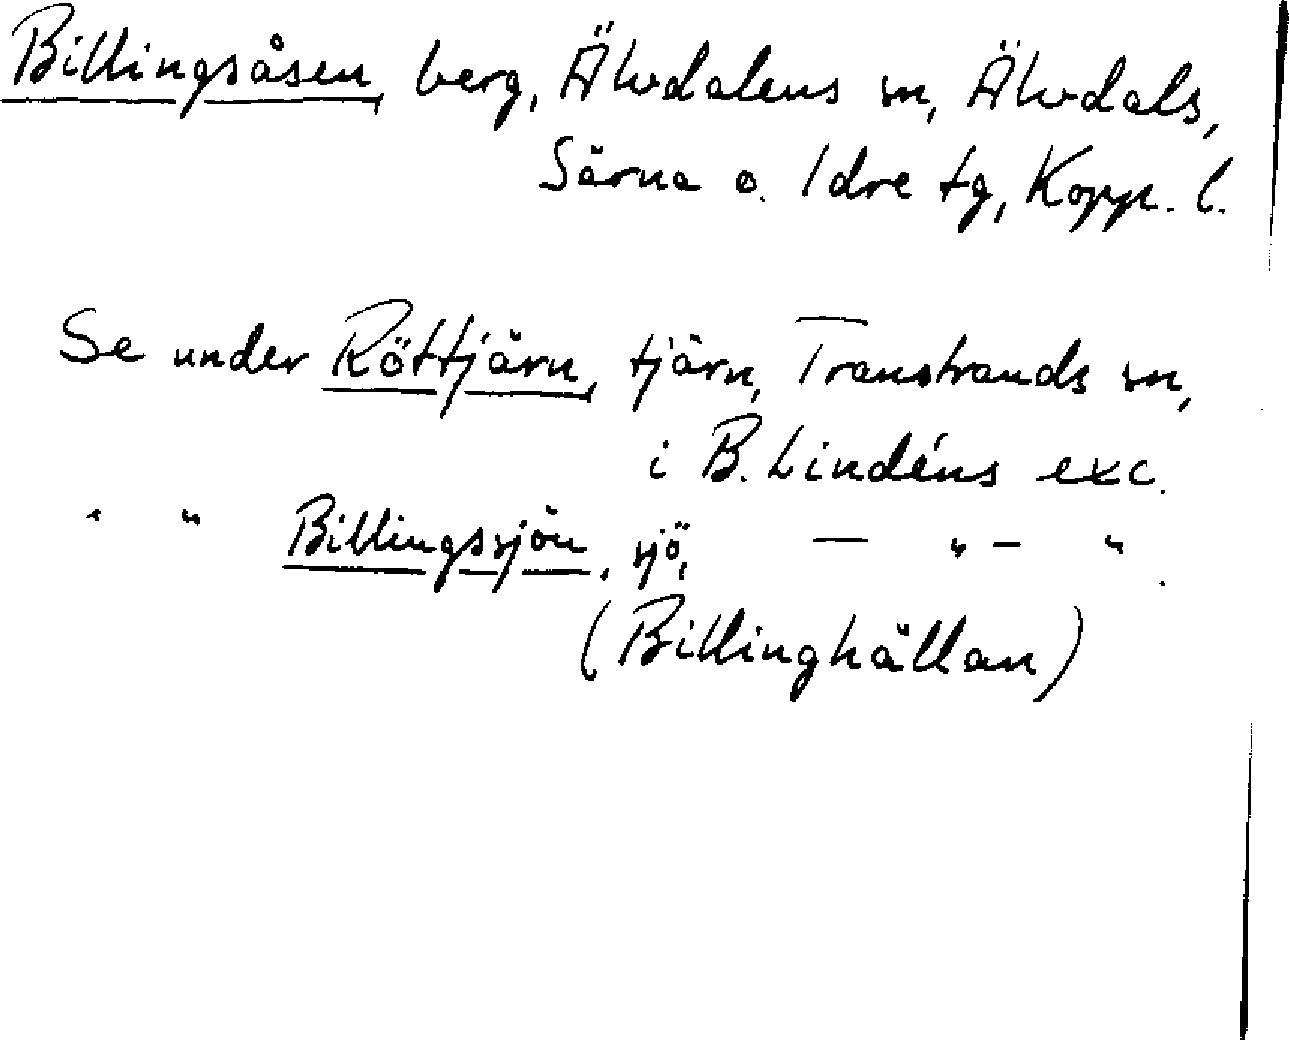 Billingsåsen, berg, Älvdalens sn, Älvdals,
Särna o. Idre tg, Kopp. l.
Se under Röttjärn, tjärn, Transtrands sn,
i B. Lindéns exc.
" " Billingssjön, sjö, — " — " .
(Billinghällan)